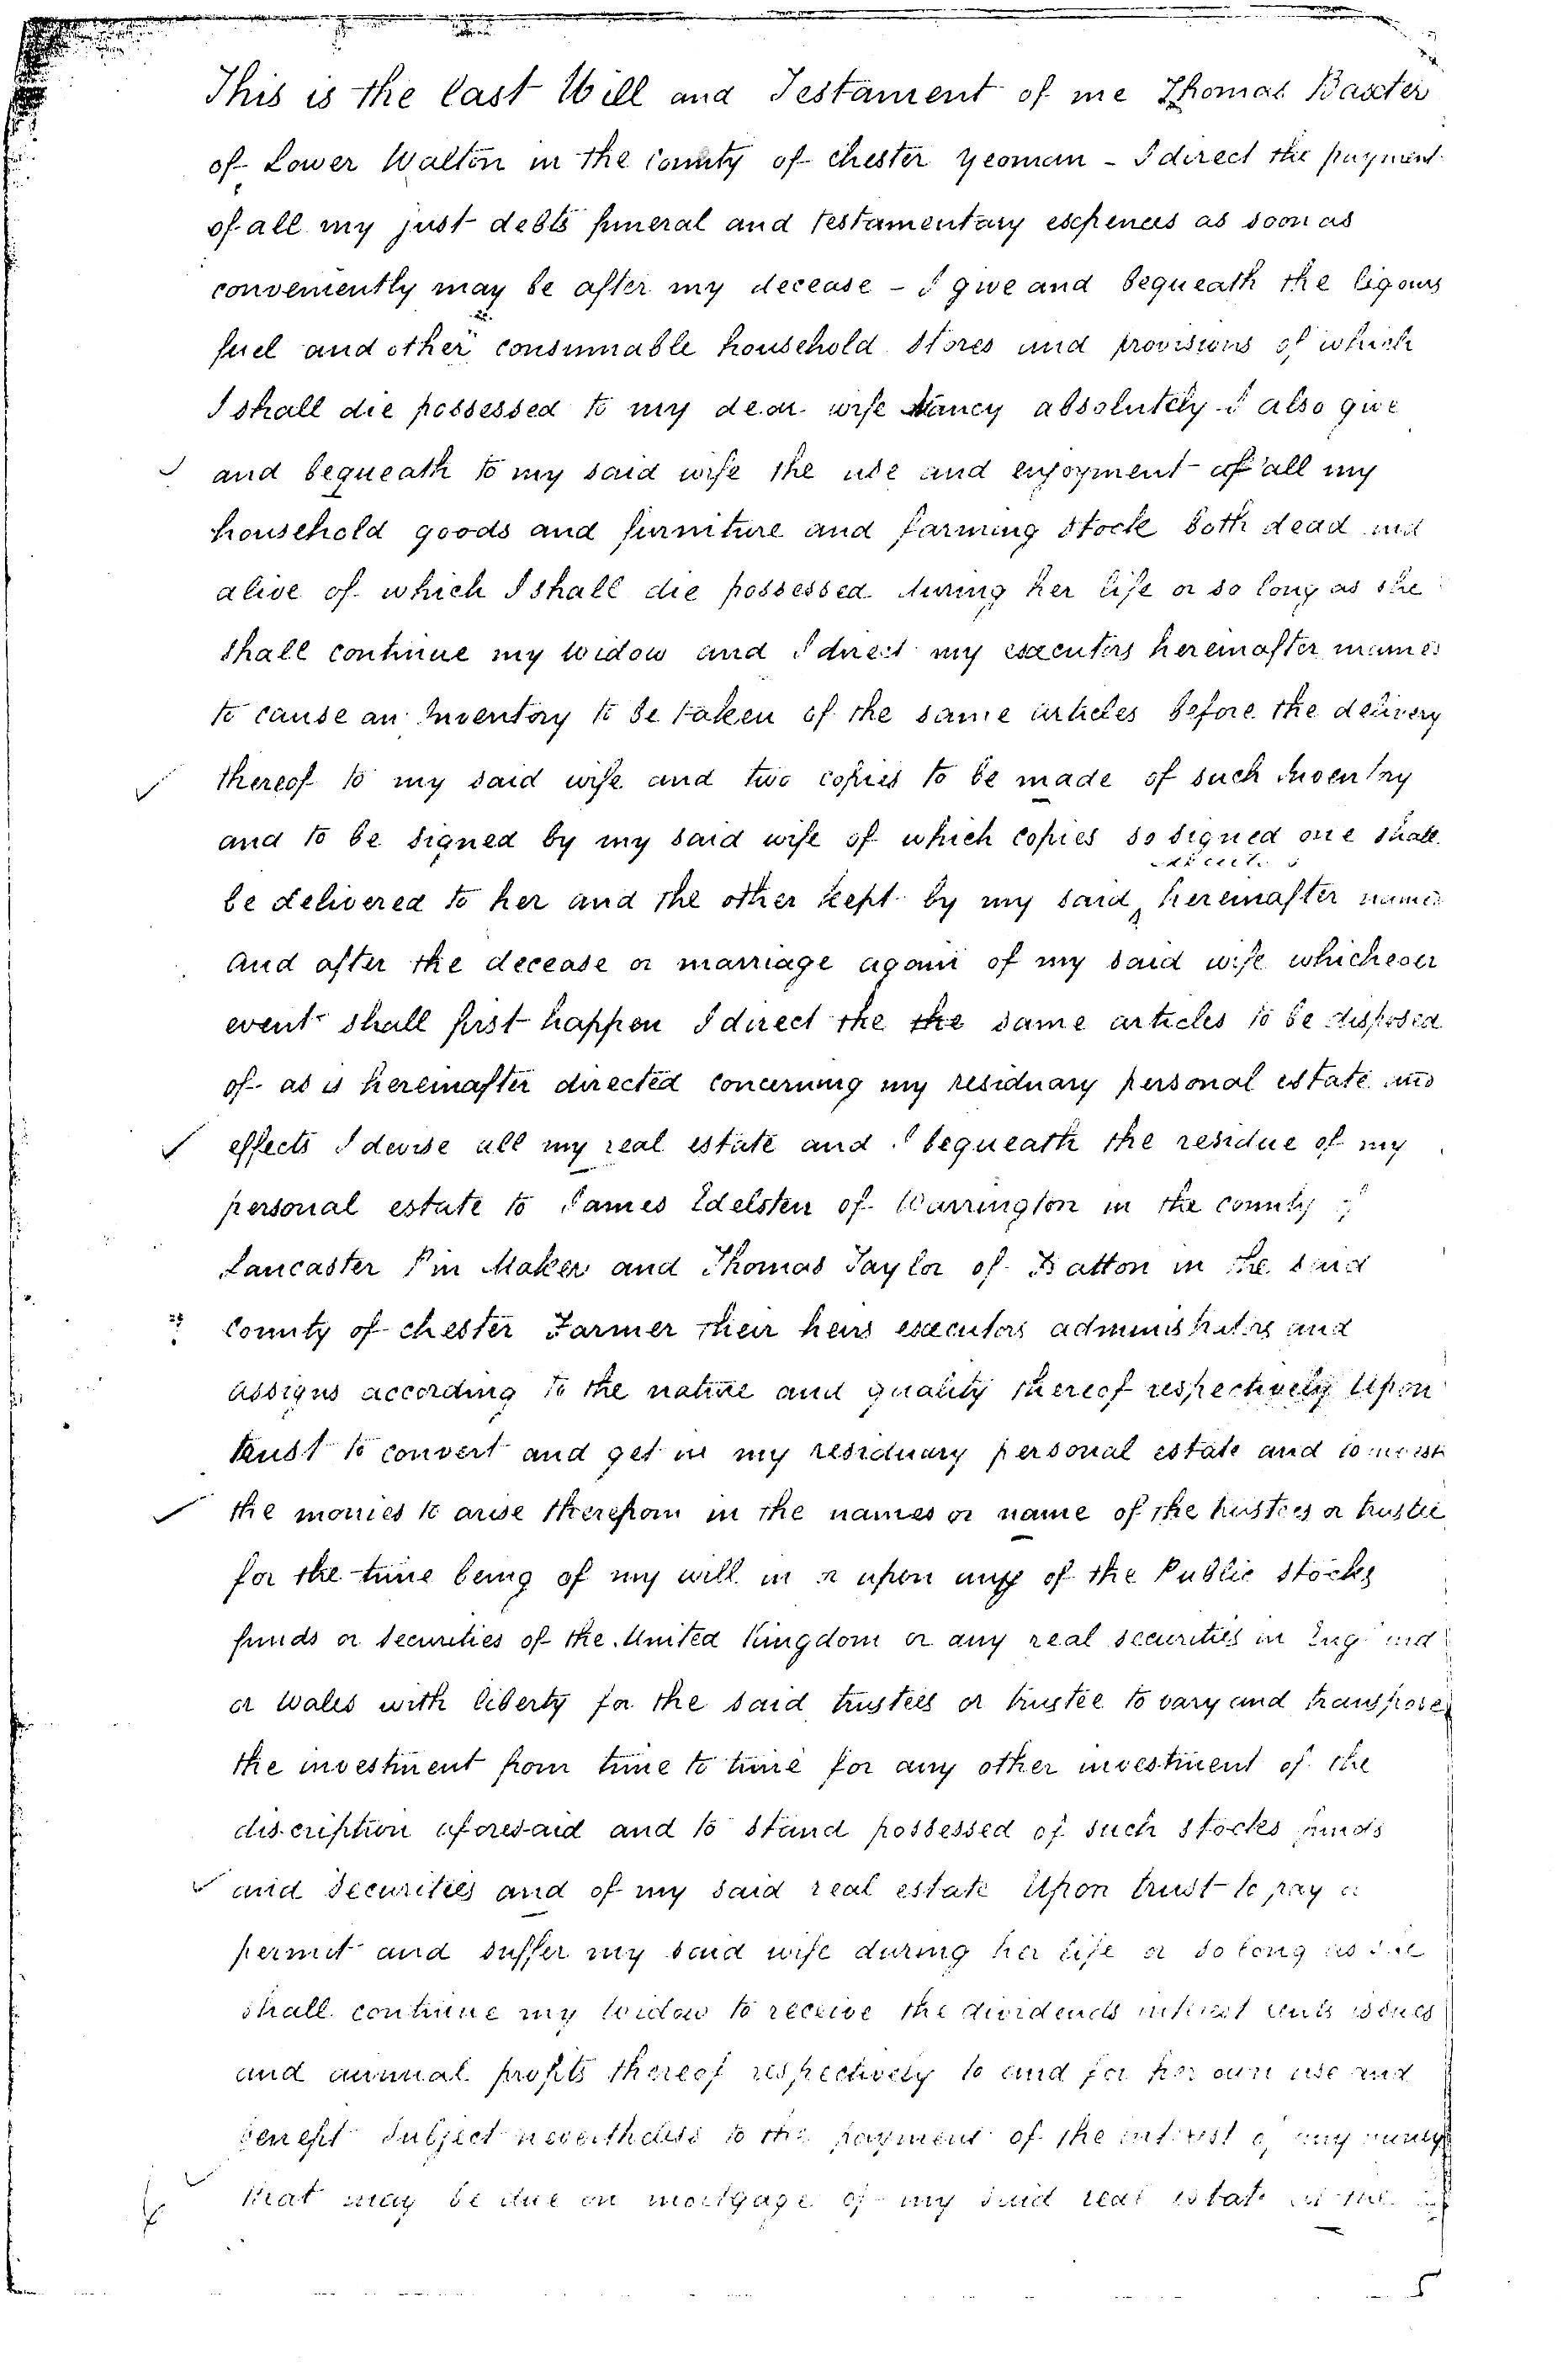 This is the last Will and Testament of me Thomas Baxter
of Lower Walton in the county of chester yeoman - I direct the payment
of all my just debts funeral and testamentary expences as soon as
conveniently may be after my decease - I give and bequeath the liqours
fuel and other consumable household stores and provisions of which
I shall die possessed to my dear wife Nancy absolutely I also give
and bequeath to my said wife the use and enjoyment of all my
household goods and furniture and farming stock both dead and
alive of which I shall die possessed during her life or so long as she
shall continue my widow and I direct my executors hereinafter named
to cause an Inventory to be taken of the same articles before the delivery
thereof to my said wife and two copies to be made of such Inventory
and to be signed by my said wife of which copies so signed one shall
executors
be delivered to her and the other kept by my said hereinafter named
and after the decease or marriage again of my said wife whichever
event shall first happen I direct the the same articles to be disposed
of as is hereinafter directed concerning my residuary personal estate and
effects I devise all my real estate and I bequeath the residue of my
personal estate to James Edelsten of Warrington in the county of
Lancaster Pin Maker and Thomas Taylor of in the said
County of chester Farmer their heirs executors administrators and
assigns according to the nature and quality thereof respectively Upon
trust to convert and get in my residuary personal estate and to invest
the monies to arise therefrom in the names or name of the trustees or trustee
for the time being of my will in or upon any of the Public stocks
funds or securities of the United Kingdom or any real securities in England
or Wales with liberty for the said trustees or trustee to vary and transpose
the investment from time to time for any other investment of the
discription aforesaid and to stand possessed of such stocks funds
and securities and of my said real estate Upon trust to pay or
permit and suffer my said wife during her life or so long as she
shall continue my widow to receive the dividends interest rents issues
and annual profits thereof respectively to and for her own use and
benefit subject nevertheless to the payment of the interest of any money
that may be due on mortgage of my said real estate at the
5